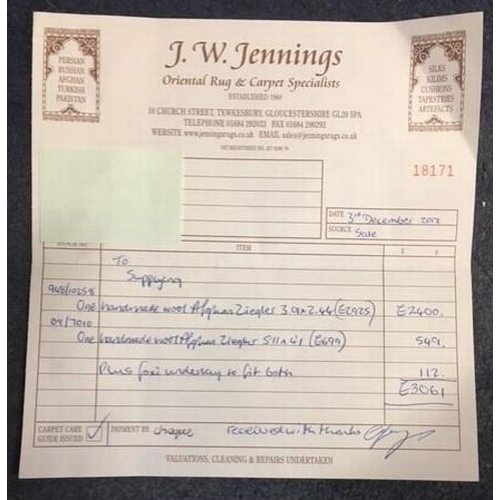 PERSIAN
RUSSIAN
AFGHAN
TURKISH
PAKISTAN
J. W. Jennings
Oriental Rug & Carpet Specialists
ESTABLISHED 1969
SILKS
KILIMS
CUSHIONS
TAPESTRIES
ARTEFACTS
10 CHURCH STREET, TEWKESBURY, GLOUCESTERSHIRE GL20 5PA
TELEPHONE 01684 292033 FAX 01684 290292
WEBSITE www.jenningsrugs.co.uk EMAIL sales@jenningsrugs.co.uk
18171
DATE 3rd December 2012
SOURCE Sale
ITEM £ p
To
Supplying
One handmade wool Afghan Ziegler 3.01 x 2.44 (£2925) £2400.
09/7010
One handmade wool Afghan Ziegler 5'11 x 4'1 (£699) 549.
Plus foxi underlay to fit both 112.
£3061
CARPET CARE GUIDE ISSUED ✓ PAYMENT BY cheque received with thanks
VALUATIONS, CLEANING & REPAIRS UNDERTAKEN